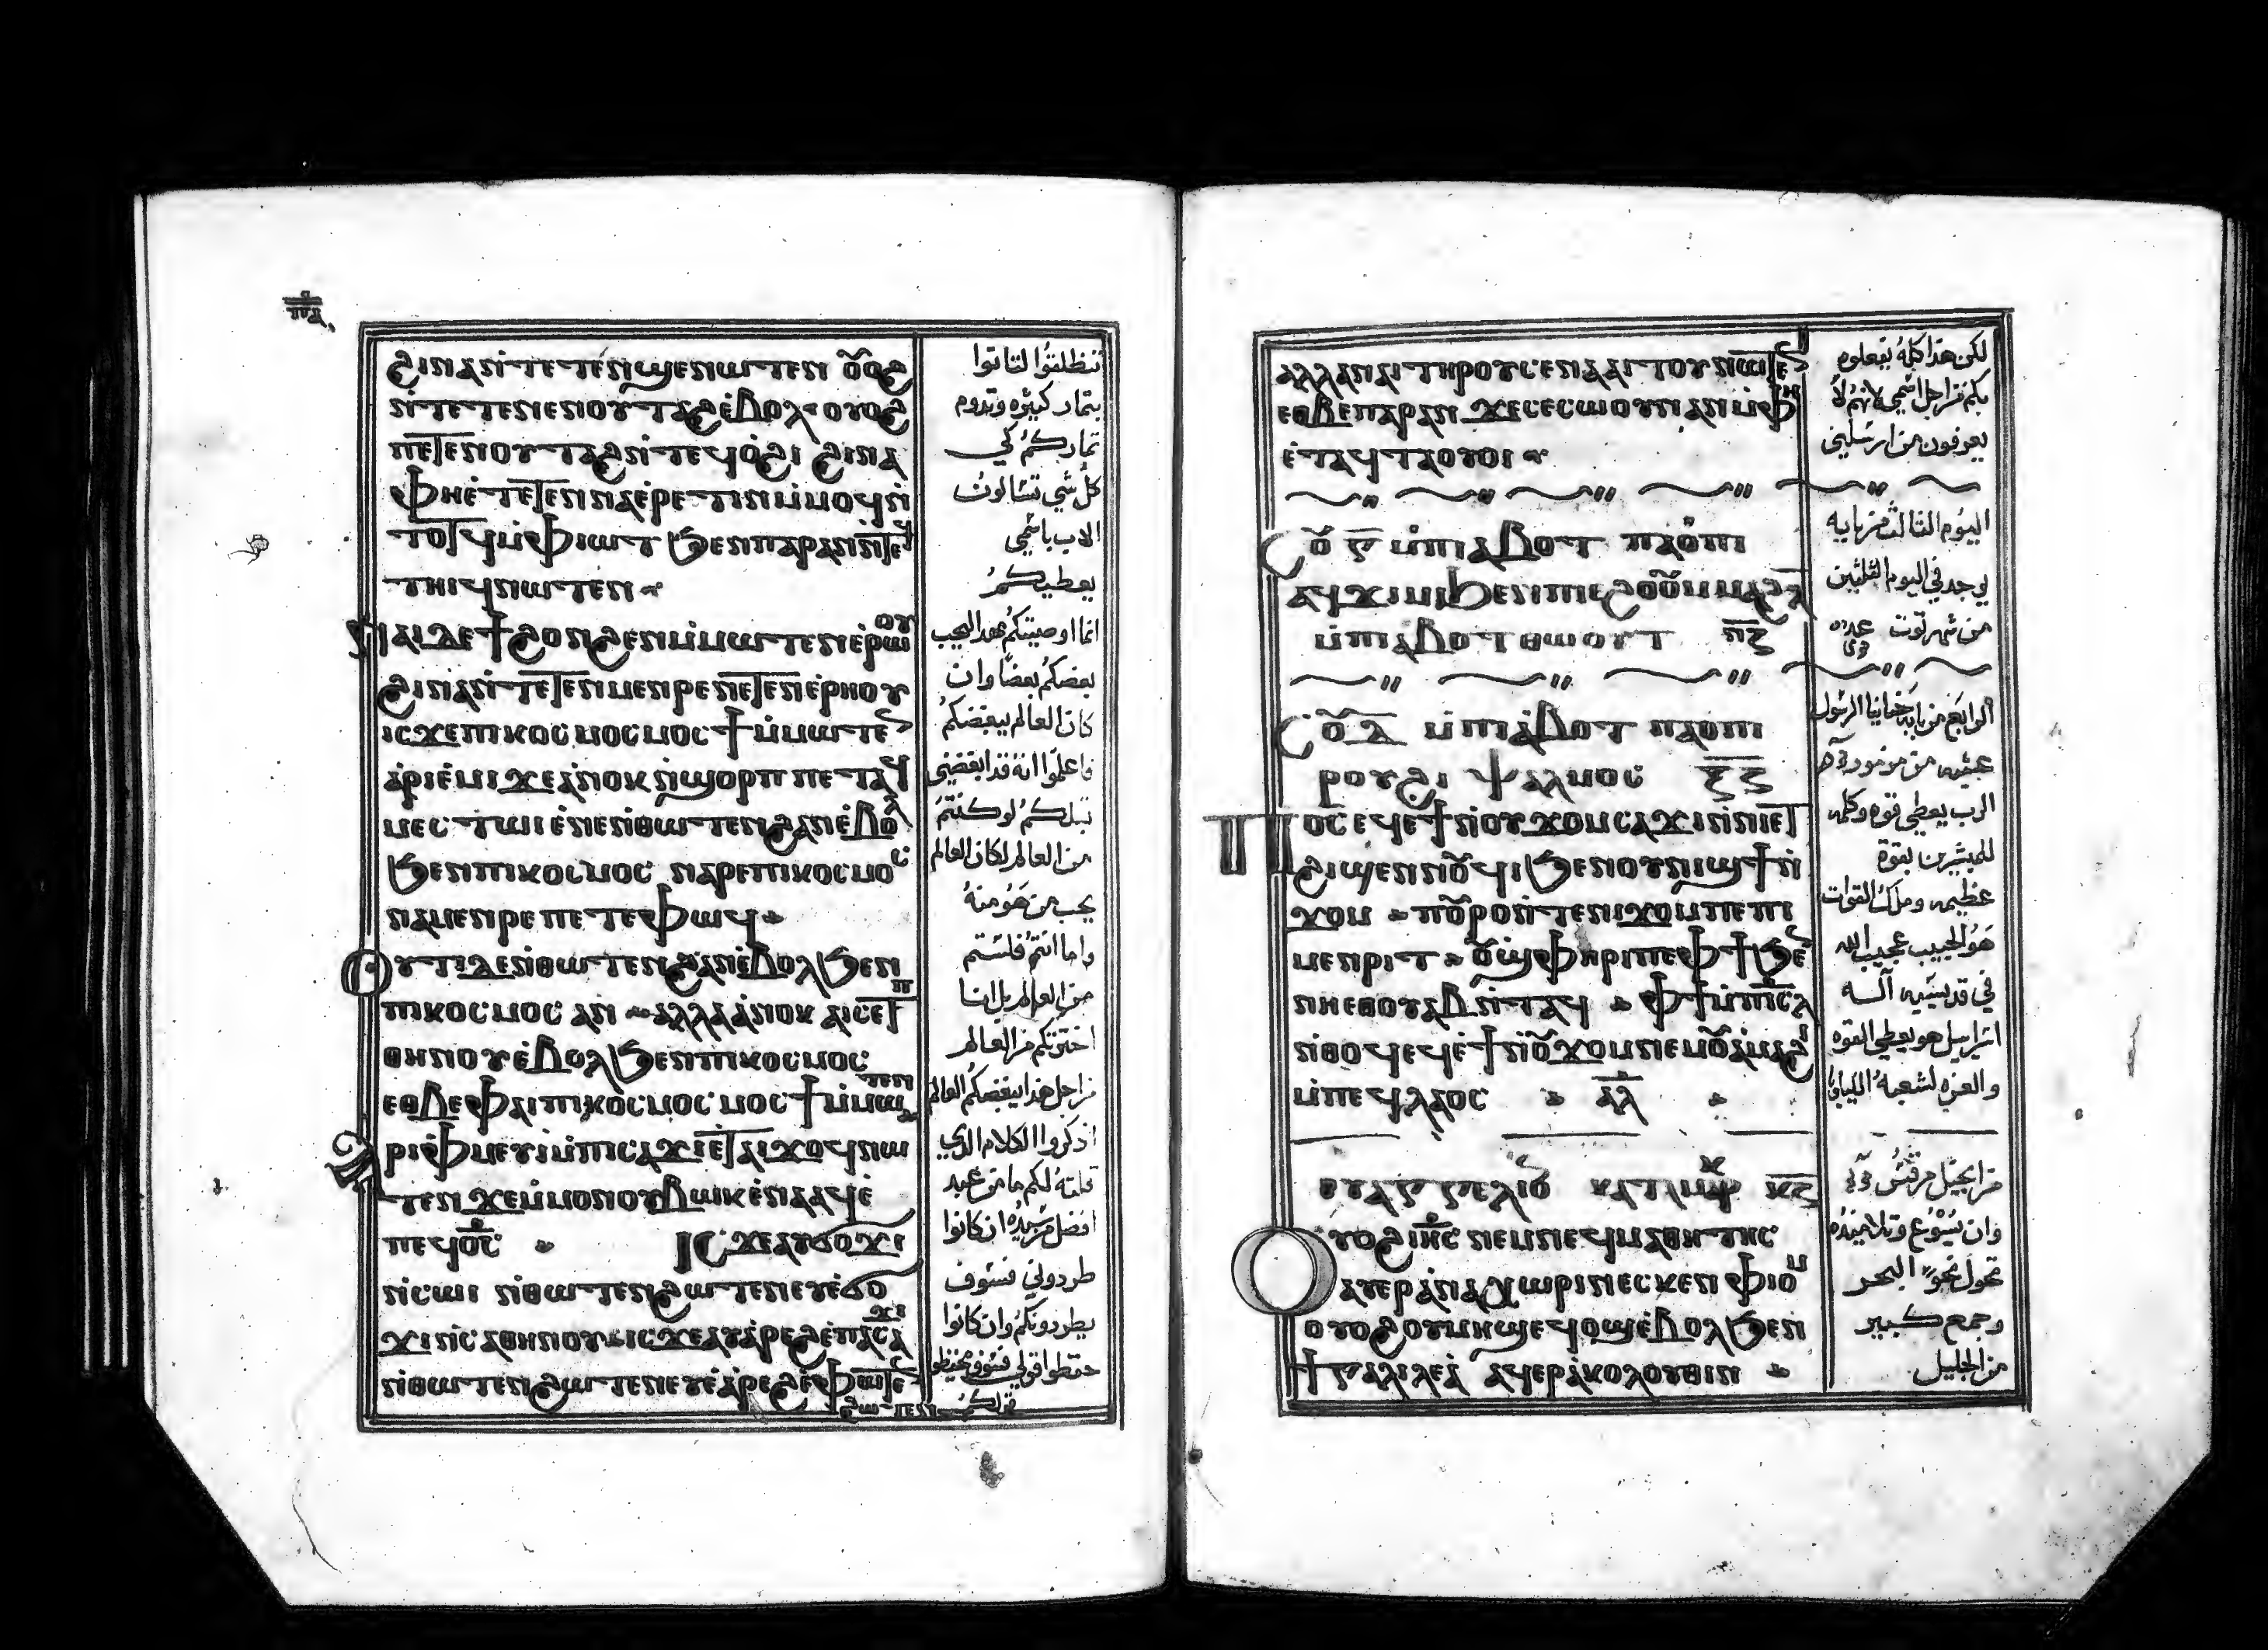 ϩⲓⲛⲁⲛ̀ⲧⲉⲧⲉⲛϣⲉⲛⲱⲧⲉⲛ ⲟ̅ⲟϩ
ⲛ̀ⲧⲉⲧⲉⲛⲉⲛⲟⲩⲧⲁϩⲉ̀ⲃⲟⲗ ⲟⲩⲟϩ
ⲡⲉⲧⲉⲛⲟⲩⲧⲁϩⲛ̀ⲧⲉϥⲟ̀ϩⲓ ϩⲓⲛⲁ
ⲫⲏⲉ̀ⲧⲉⲧⲉⲛⲛⲁⲉ̀ⲣⲉⲧⲓⲛⲙ̀ⲙⲟϥⲛ̀
ⲧⲟⲧϥⲙ̀ⲫⲓⲱⲧ ϧⲉⲛⲡⲁⲣⲁⲛⲛ̀ⲧⲉϥ
ⲧⲏⲓϥⲛⲱⲧⲉⲛ
ⲛⲁⲓⲇⲉϯϩⲟⲛϩⲉⲛⲙ̀ⲙⲱⲧⲉⲛⲉ̀ⲣⲱⲟⲩ
ϩⲓⲛⲁⲛ̀ⲧⲉⲧⲉⲛⲙⲉⲛⲣⲉⲛⲉⲧⲉⲛⲉ̀ⲣⲏⲟⲩ
ⲓⲥϫⲉⲡⲓⲕⲟⲥⲙⲟⲥⲙⲟⲥϯⲙ̀ⲙⲱⲧⲉⲛ
ⲁ̀ⲣⲓⲉ̀ⲙⲓϫⲉⲁ̀ⲛⲟⲕⲛ̀ϣⲟⲣⲡ ⲡⲉⲧⲁϥ
ⲙⲉⲥⲧⲱⲓ ⲉ̀ⲛⲉⲛ̀ⲑⲱⲧⲉⲛϩⲁⲛⲉ̀ⲃⲟⲗ
ϧⲉⲛⲡⲓⲕⲟⲥⲙⲟⲥ ⲛⲁⲣⲉⲡⲓⲕⲟⲥⲙⲟⲥ
ⲛⲁⲙⲉⲛⲣⲉ ⲡⲉⲧⲉⲫⲱϥ
ⲟⲩⲧⲓⲇⲉⲛ̀ⲑⲱⲧⲉⲛϩⲁⲛⲉ̀ⲃⲟⲗϧⲉⲛ
ⲡⲓⲕⲟⲥⲙⲟⲥ ⲁⲛ ⲁⲗⲗⲁⲁ̀ⲛⲟⲕ ⲁⲓⲥⲉⲧⲡ
ⲑⲏⲛⲟⲩⲉ̀ⲃⲟⲗϧⲉⲛⲡⲓⲕⲟⲥⲙⲟⲥ
ⲉⲑⲃⲉⲫⲁⲓⲡⲓⲕⲟⲥⲙⲟⲥ ⲙⲟⲥϯⲙ̀ⲙⲱⲧⲉⲛ
ⲁⲣⲓⲫ̀ⲙⲉⲩⲓⲙ̀ⲡⲓⲥⲁϫⲓⲉ̀ⲧⲁⲓϫⲟϥⲛⲱ
ⲧⲉⲛ ϫⲉⲙ̀ⲙⲟⲛⲟⲩⲃⲱⲕⲉ̀ⲛⲁⲁϥⲉ̀
ⲡⲉϥⲟ̅ⲥ̅ ⲓⲥϫⲉⲁⲩϭⲟϫⲓ
ⲛ̀ⲥⲱⲓ ⲛ̀ⲑⲱⲧⲉⲛϩⲱⲧⲉⲛⲉⲩⲉ̀ϭⲟ
ϫⲓⲛ̀ⲥⲁⲑⲏⲛⲟⲩ ⲓⲥϫⲉⲁⲩⲁ̀ⲣⲉϩⲉ̀ⲡⲁⲥⲁϫⲓ
ⲛ̀ⲑⲱⲧⲉⲛϩⲱⲧⲉⲛⲉⲩⲉ̀ⲁ̀ⲣⲉϩⲉⲫⲱⲧⲉⲛ
ϩⲱⲧⲉⲛ
تنطلقوا لتاتوا
بثمار كثيره وتدوم
ثماركم كي
كل شي تسالون
الاب باسمي
يعطيكم
انما اوصيتكم بهذا ليحب
بعضكم بعضا وان
كان العالم يبغضكم
فاعلموا انه قد ابغضني
قبلكم لو كنتم
من العالم لكان العالم
يحب من هو منه
واما انتم فلستم
من العالم بل انا
اخترتكم من العالم
من اجل هذا يبغضكم العالم
اذكروا الكلام الذي
قلته لكم ما من عبد
افضل من سيده ان كانوا
طردوني فسوف
يطردونكم وان كانوا
حفظوا قولي فسوف يحفظوا
قولكم
ⲁⲗⲗⲁⲛⲁⲓⲧⲏⲣⲟⲩⲥⲉⲛⲁⲁⲓⲧⲟⲩⲛⲱⲧⲉⲛ
ⲉⲑⲃⲉⲡⲁⲣⲁⲛ ϫⲉⲥⲉⲥⲱⲟⲩⲛⲁⲛⲙ̀ⲫⲏ
ⲉ̀ⲧⲁϥⲧⲁⲟⲩⲟⲓ
ⲥⲟ̅ ⲅ̅ ⲙ̀ⲡⲓⲁ̀ⲃⲟⲧ ⲡⲁⲟ̀ⲡⲓ
ⲁϥϫⲓⲙⲓϧⲉⲛⲡⲓⲉϩⲟⲟ̅ⲩⲙ̀ⲙⲁϩⲗ̅
ⲙ̀ⲡⲓⲁ̀ⲃⲟⲧ ⲑⲱⲟⲩⲧ ⲡ̅ⲍ̅
ⲥⲟ̅ ⲇ̅ ⲙ̀ⲡⲓⲁ̀ⲃⲟⲧ ⲡⲁⲟⲡⲓ
ⲣⲟⲩϩⲓ ⲯⲁⲗⲙⲟⲥ ⲝ̅ⲍ̅
ⲡⲟ̅ⲥ̅ ⲉϥⲉϯⲛ̀ⲟⲩϫⲟⲙⲥⲁϫⲓⲛ̀ⲛⲓⲉⲧ
ϩⲓϣⲉⲛⲛⲟ̅ϥⲓ ϧⲉⲛⲟⲩⲛⲓϣϯⲛ̀
ϫⲟⲙ ⲡⲟ̅ⲣⲟⲛ̀ⲧⲉⲛⲓϫⲟⲙⲡⲉⲡⲓ
ⲙⲉⲛⲣⲓⲧ ⲟ̅ϣⲫⲏⲣⲓⲡⲉⲫϯϧⲉⲛ
ⲛⲏⲉⲑⲟⲩⲁⲃⲛ̀ⲧⲁϥ ⲫϯⲙ̀ⲡⲓⲥ̅ⲗ̅
ⲛ̀ⲑⲟϥⲉϥⲉ̀ϯⲛ̀ⲟ̅ϫⲟⲙⲛⲉⲙⲟ̅ⲁ̀ⲙⲁϩⲓ
ⲙ̀ⲡⲉϥⲗⲁⲟⲥ ⲁ̅ⲗ̅
ⲉⲩⲁⲅⲅⲉⲗⲓⲟ̅ ⲕⲁⲧⲁⲙⲣ ⲕ̅ⲍ̅
ⲟⲩⲟϩⲓⲏ̅ⲥ̅ ⲛⲉⲙⲛⲉϥⲙⲁⲑⲏⲧⲏⲥ
ⲁⲩⲉⲣⲁ̀ⲛⲁⲭⲱⲣⲓⲛⲉⲥⲕⲉⲛ ⲫⲓⲟⲙ
ⲟⲩⲟϩⲟⲩⲙⲏϣⲉϥⲟϣⲉ̀ⲃⲟⲗϧⲉⲛ
ϯⲅⲁⲗⲓⲗⲉⲁ̀ ⲁϥⲉⲣⲁ̀ⲕⲟⲗⲟⲩⲑⲓⲛ
لكن هذا كله يفعلوه
بكم من اجل اسمي لانهم لا
يعرفون من ارسلني
اليوم الثالث من بابه
يوجد في اليوم الثلثين
من شهر توت
الرابع من بابه حنانيا الرسول
عشيه من مزمور
الرب يعطي قوه وكلمه
للمبشرين بقوة
عظيمه وملك القوات
هو الحبيب عجيب الله
في قديسيه اله
اسراييل هو يعطي القوه
والعزه لشعبه الليلويا
من انجيل مرقس
وان يسوع وتلاميذه
تحول نحو البحر
وجمع كبير
من الجليل